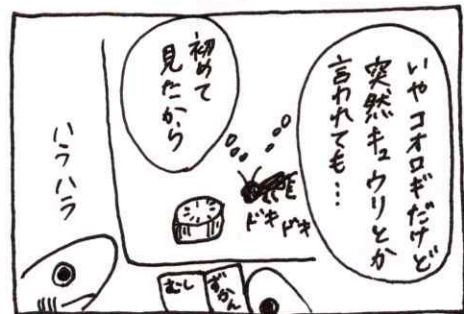 いやコオロギだけど
突然キュウリとか
言われても…
初めて
見たから
ドキ
ドキ
ハラハラ
むし
ずかん